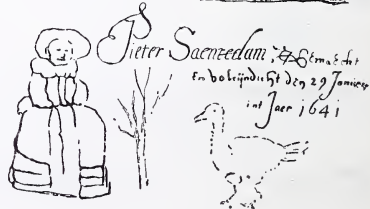 Pieter Saenredam, Gemaeckt
En voleijndicht den 29 Januarij
int Jaer 1641